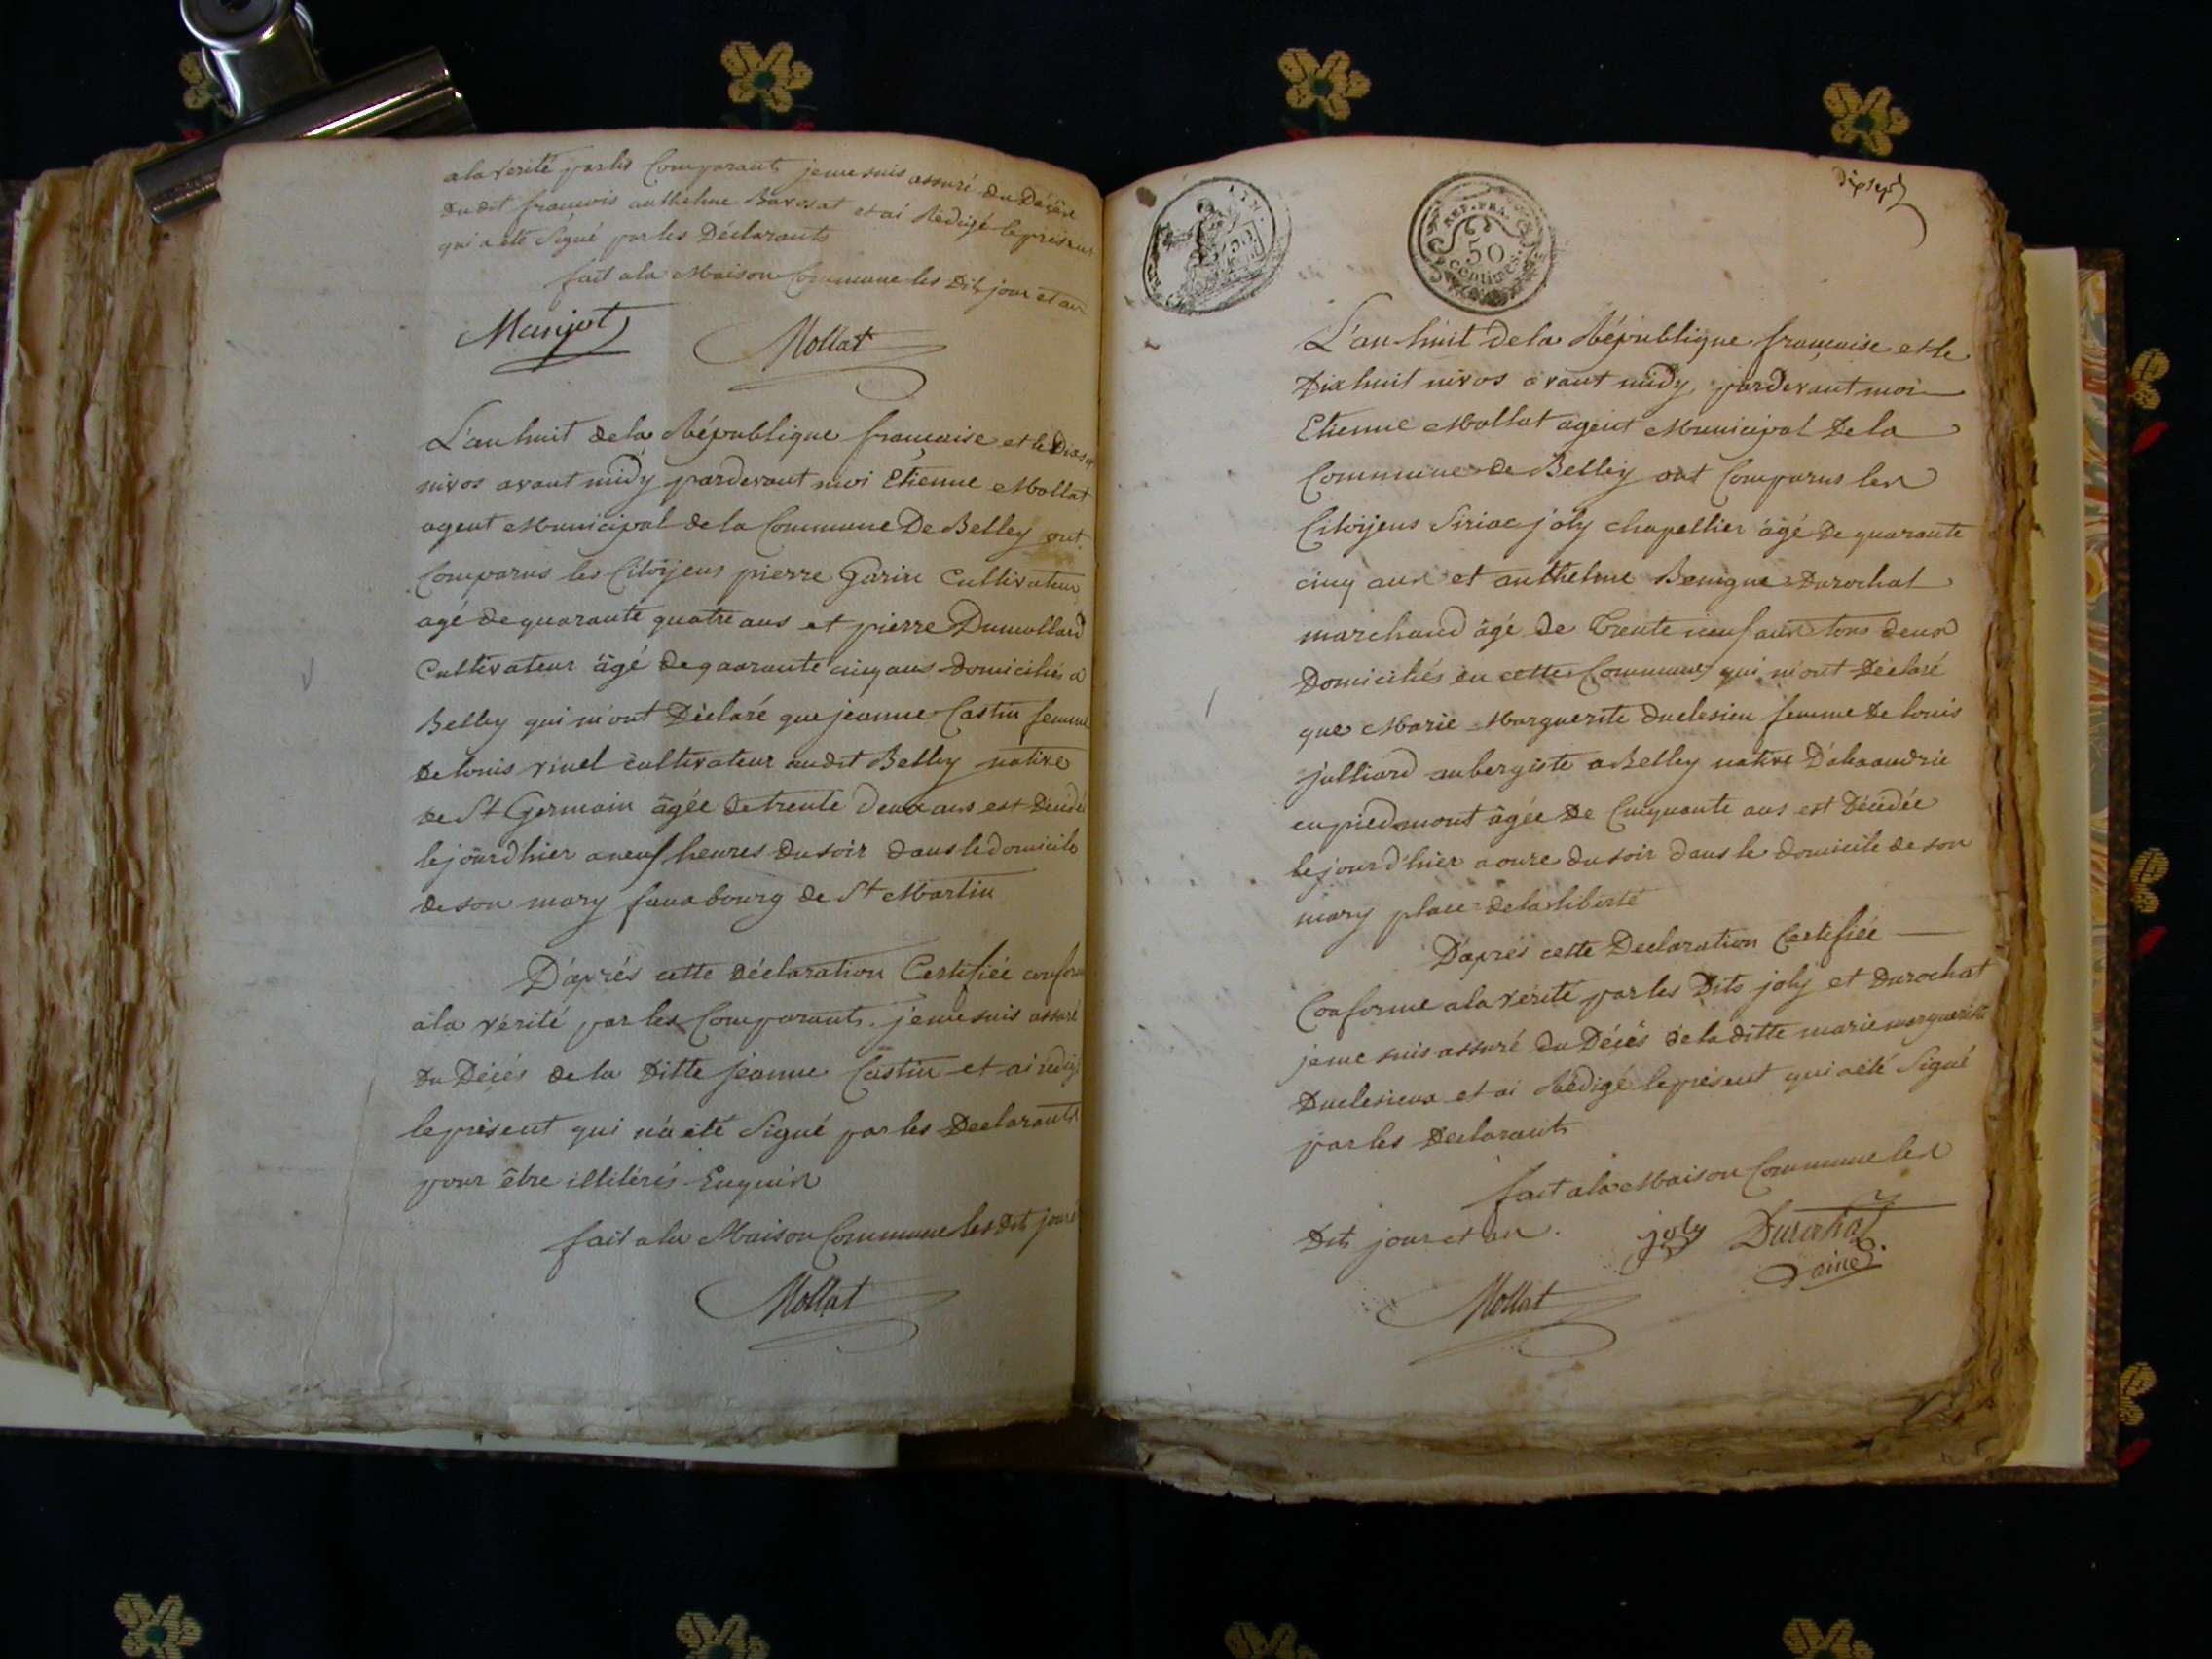 a la vérité par les Comparants je me suis assuré du Décès
du dit francois anthelme Barosat et ai Rédigé le présent
qui a été Signé par les Déclarants
fait a la Maison Commune les Dits jour et an
Manjot
Mollat
L'an huit de la République francaise et le Dix sept
nivos avant midy pardevant moi Etienne Mollat
agent Municipal de la Commune De Belley ont
Comparus les Citoÿens pierre Garin Cultivateur
agé de quarante quatre ans et pierre Dumollard
Cultivateur âgé de quarante cinq ans Domiciliés a
Belley qui m'ont Déclaré que jeanne Castin femme
De louis vinel cultivateur audit Belley native
de St Germain âgée de trente deux ans est Décédé
le jourd'hier a neuf heures du soir dans le domicile
de son mary fauxbourg de St Martin
D'aprés cette Déclaration Certifiée conform
a la vérité par les Comparants je me suis assuré
Du Décés de la Ditte jeanne Castin et ai rédigé
le présent qui n'a été Signé par les Declarants
pour être illitérés Enquis
fait a la Maison Commune les Dits jour
Mollat
dix sept
REP. FRA.
50
centimes
L'an huit de la République francaise et le
Dix huit nivos avant midy, pardevant moi
Etienne Mollat agent Municipal De la
Commune de Belley ont Comparus les
Citoÿens Siriac joly chapellier âgé De quarante
cinq ans et anthelme Benigne Durochat
marchand âgé de Trente neuf ans tous deux
Domiciliés en cette Commune qui m'ont Déclaré
que Marie Marguerite Duclesieu femme De louis
julliard aubergiste a Belley native
en piedmont âgée De Cinquante ans est Décédée
le jourd'hier a onze du soir dans le domicile de son
mary place de la liberté
D'aprés cette Declaration Certifiée
Conforme a la vérité par les Dits joly et Durochat
je me suis assuré du Décés de la ditte marie marguerite
Duclesieux et ai Rédigé le présent qui a été Signé
par les Declarants
fait a la Maison Commune les
Dits jour et an.
joly Durochat
ainé
Mollat